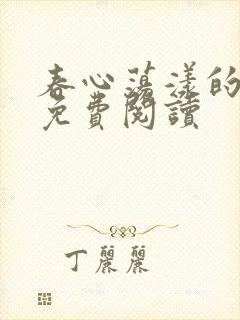 春心蕩漾的
免費閱讀
丁麗麗